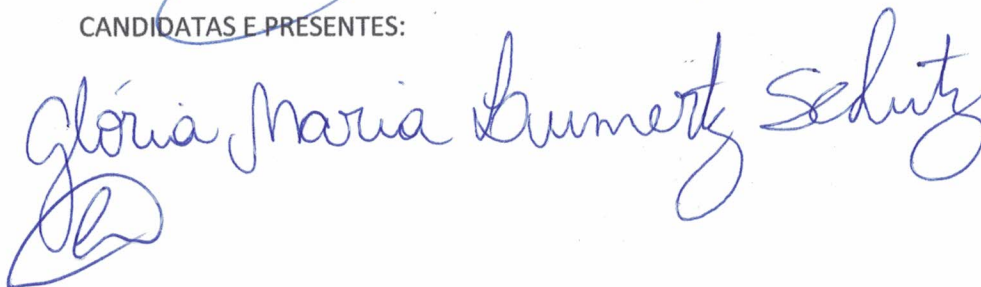 CANDIDATAS E PRESENTES:
Glória Maria Schutz